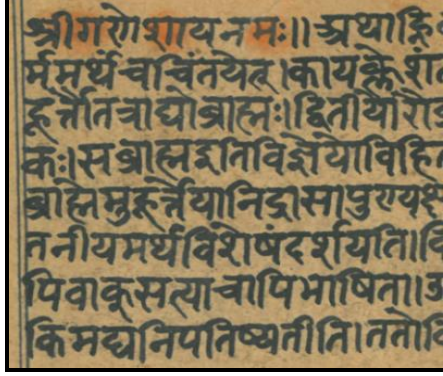 श्रीगणेशायनमः॥अथाह्नि
र्ममर्थंचचिंतयेत्।कायक्लेशं
हूर्त्तौतत्राद्योब्राह्मः।द्वितीयोरौ
कः।सब्राह्मइतिविज्ञेयोविहि
ब्राह्मेमुहूर्त्तेयानिद्रासापुण्यक्ष
तनीयमर्थविशेषंदर्शयति।
पिवाकुसत्याचापिभाषिता॥
किमद्यनिपतिष्यतीति।ततो